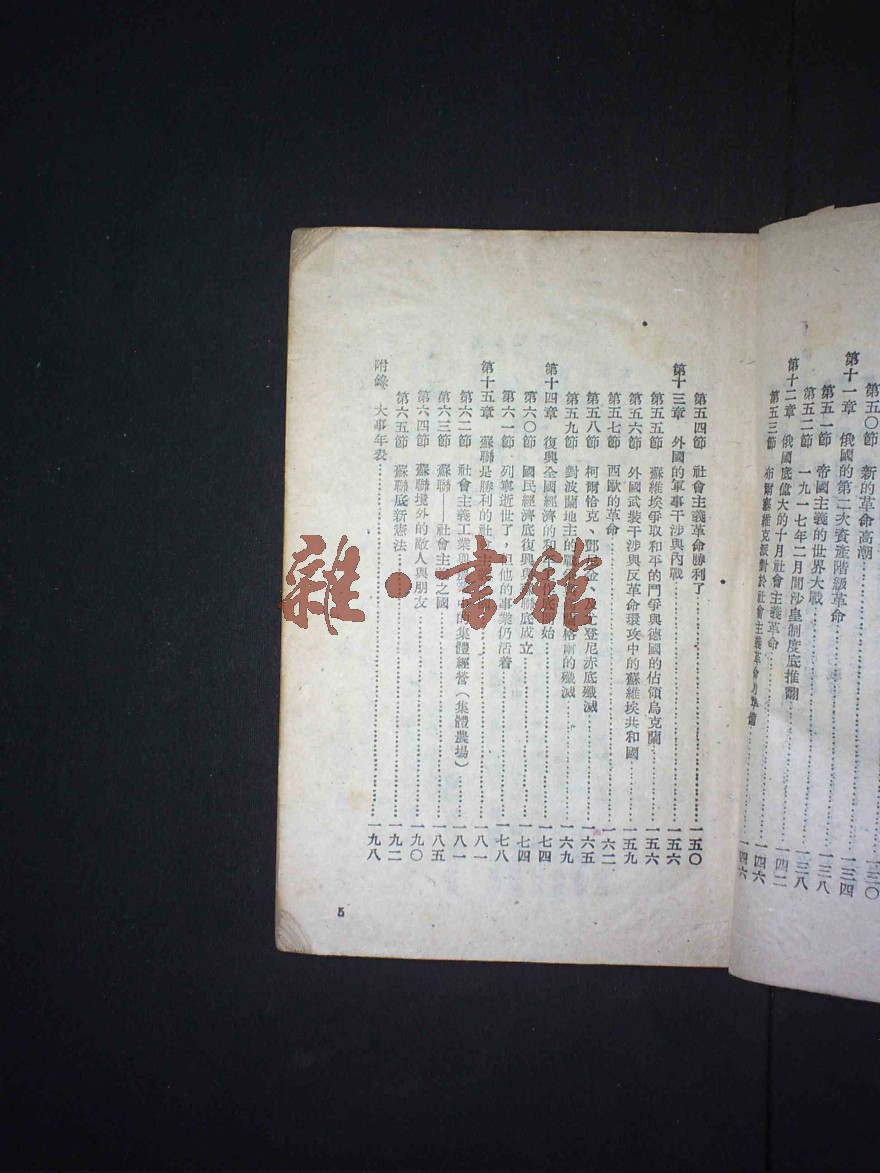 第五〇節 新的革命高潮……一三〇
第十一章 俄國的第二次資產階級革命……一三四
第五一節 帝國主義的世界大戰……一三八
第五二節 一九一七年二月間沙皇制度底推翻……一四二
第十二章 俄國底偉大的十月社會主義革命……一四六
第五三節 布爾塞維克派對於社會主義革命準備……一四六
第五四節 社會主義革命勝利了……一五〇
第十三章 外國的軍事干涉與內戰……一五六
第五五節 蘇維埃爭取和平的鬥爭與德國的佔領烏克蘭……一五六
第五六節 外國武裝干涉與反革命環攻中的蘇維埃共和國……一五九
第五七節 西歐的革命……一六二
第五八節 柯爾恰克、鄧金、及尤登尼赤底殲滅……一六五
第五九節 對波蘭地主的戰格爾的殲滅……一六九
第十四章 復興全國經濟的和平底始……一七四
第六〇節 國民經濟底復興與聯底成立……一七四
第六一節 列寧逝世了，但他的事業仍活着……一七八
第十五章 蘇聯是勝利的社會主……一八一
第六二節 社會主義工業與農中的集體經營（集體農場）……一八一
第六三節 蘇聯——社會主義之國……一八五
第六四節 蘇聯境外的敵人與朋友……一九〇
第六五節 蘇聯底新憲法……一九二
附錄 大事年表……一九八
5
雜·書館